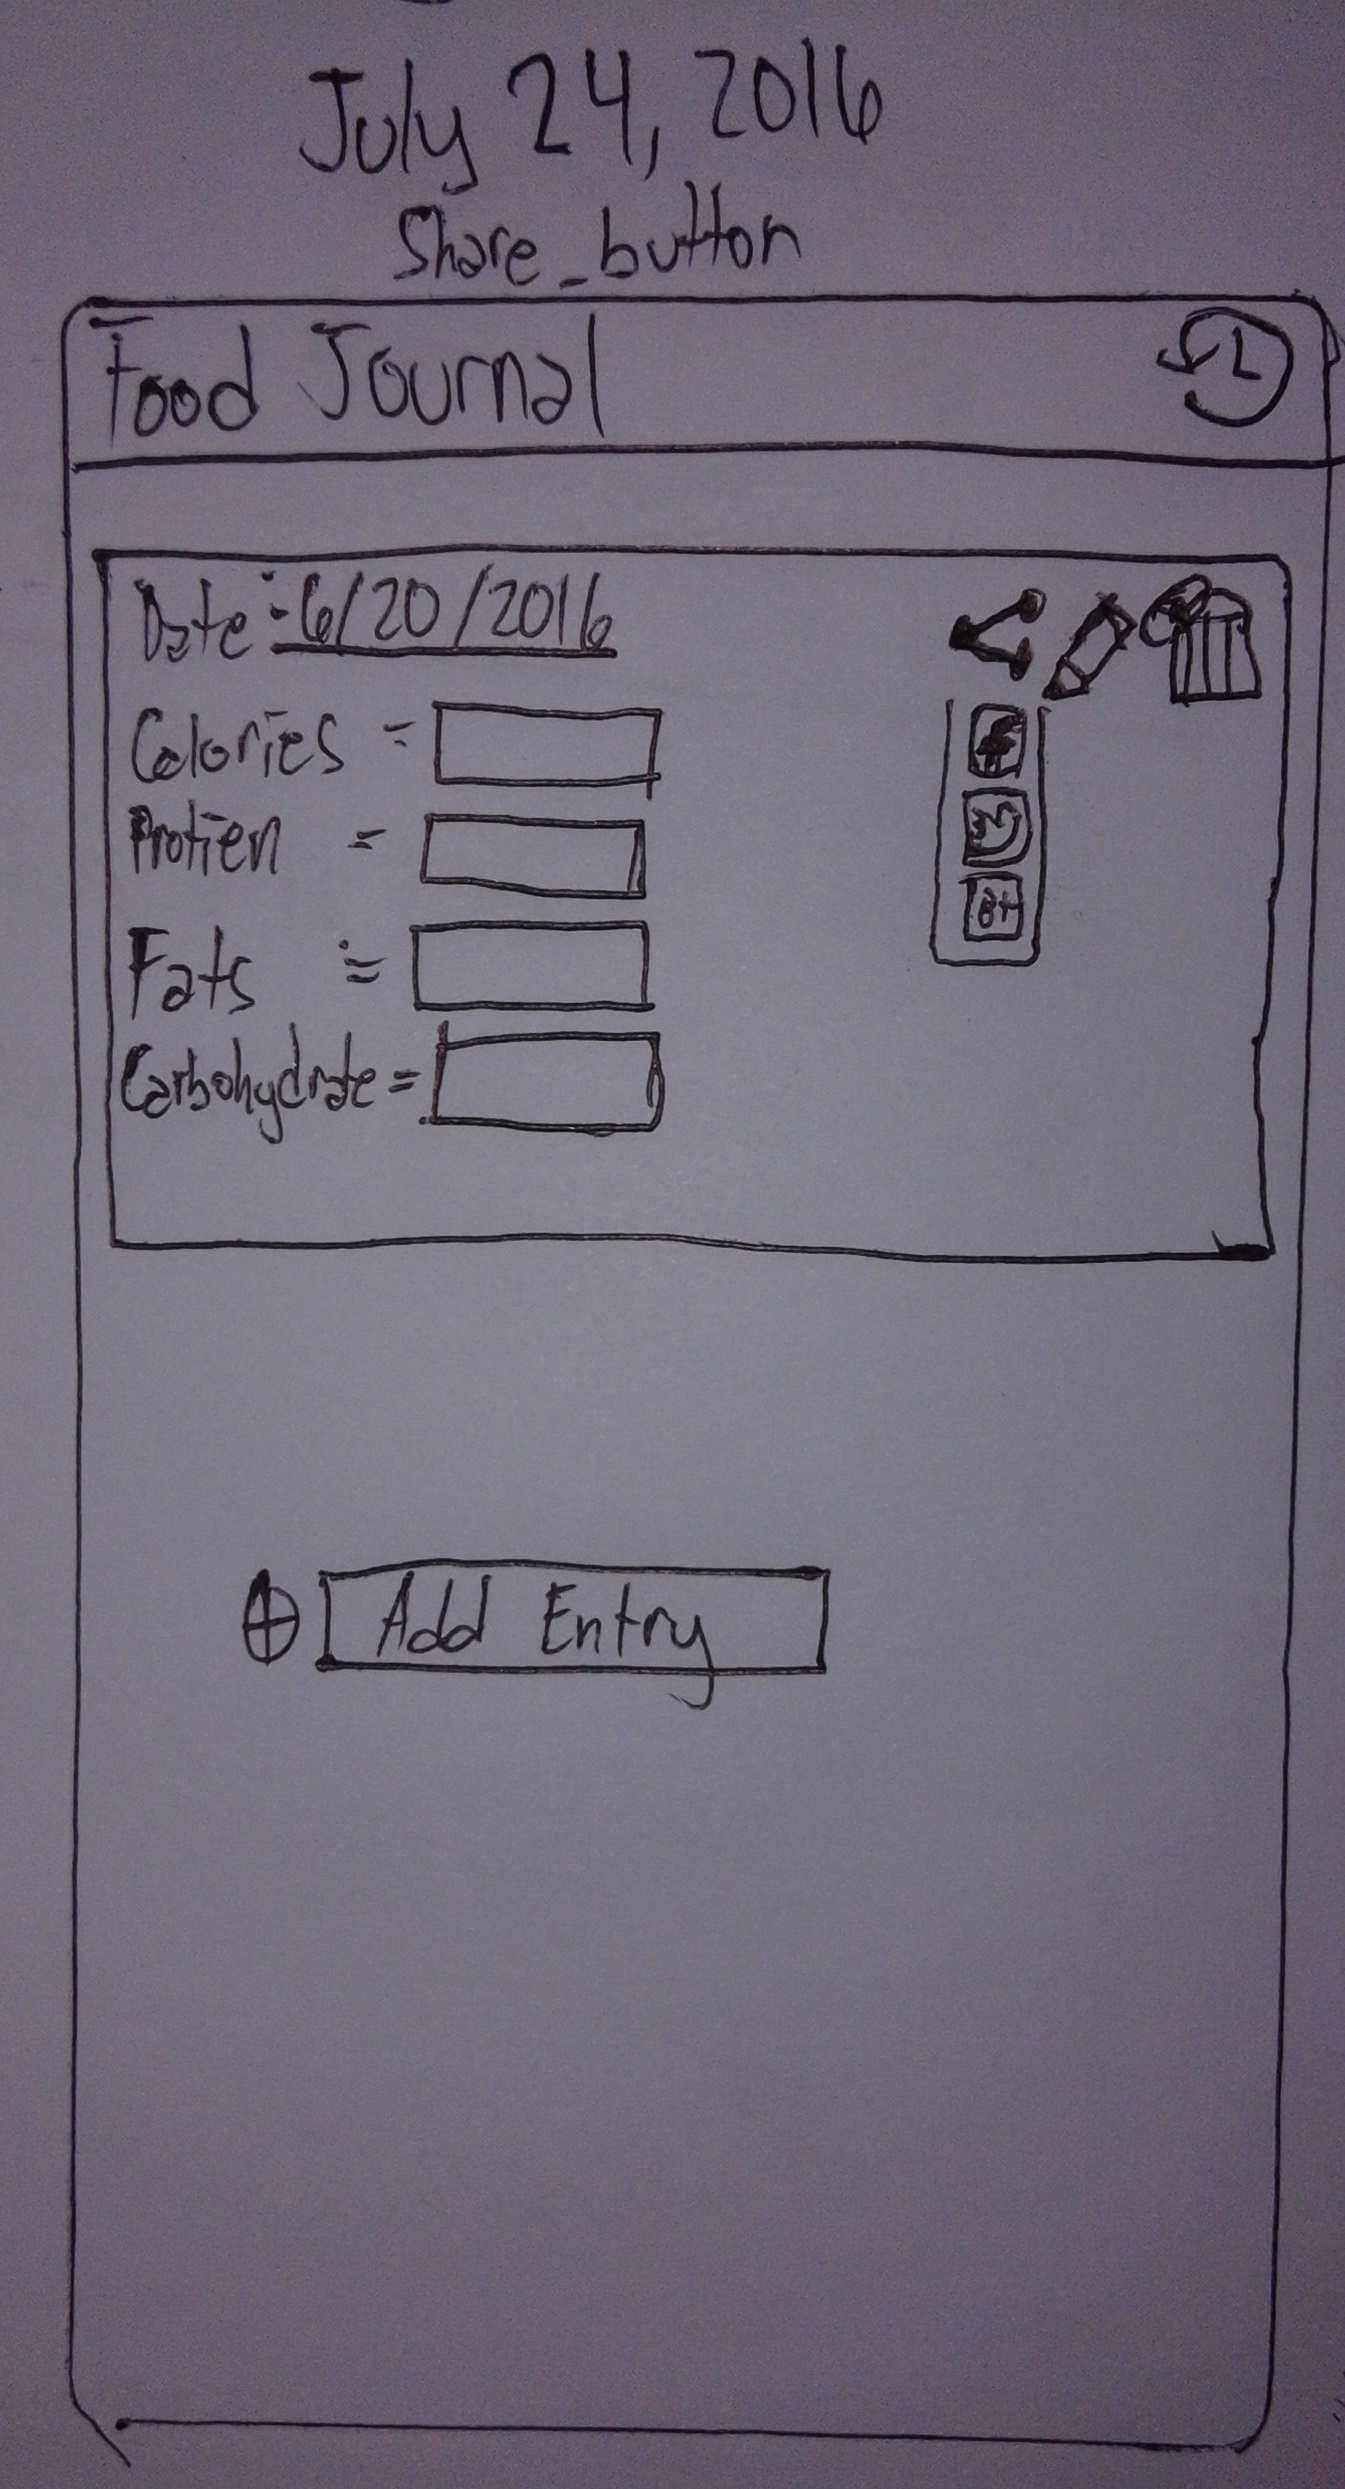 July 24, 2016
Share_button
Food Journal
Date: 6/20/2016
Calories =
Protien =
Fats =
Carbohydrate =
Add Entry